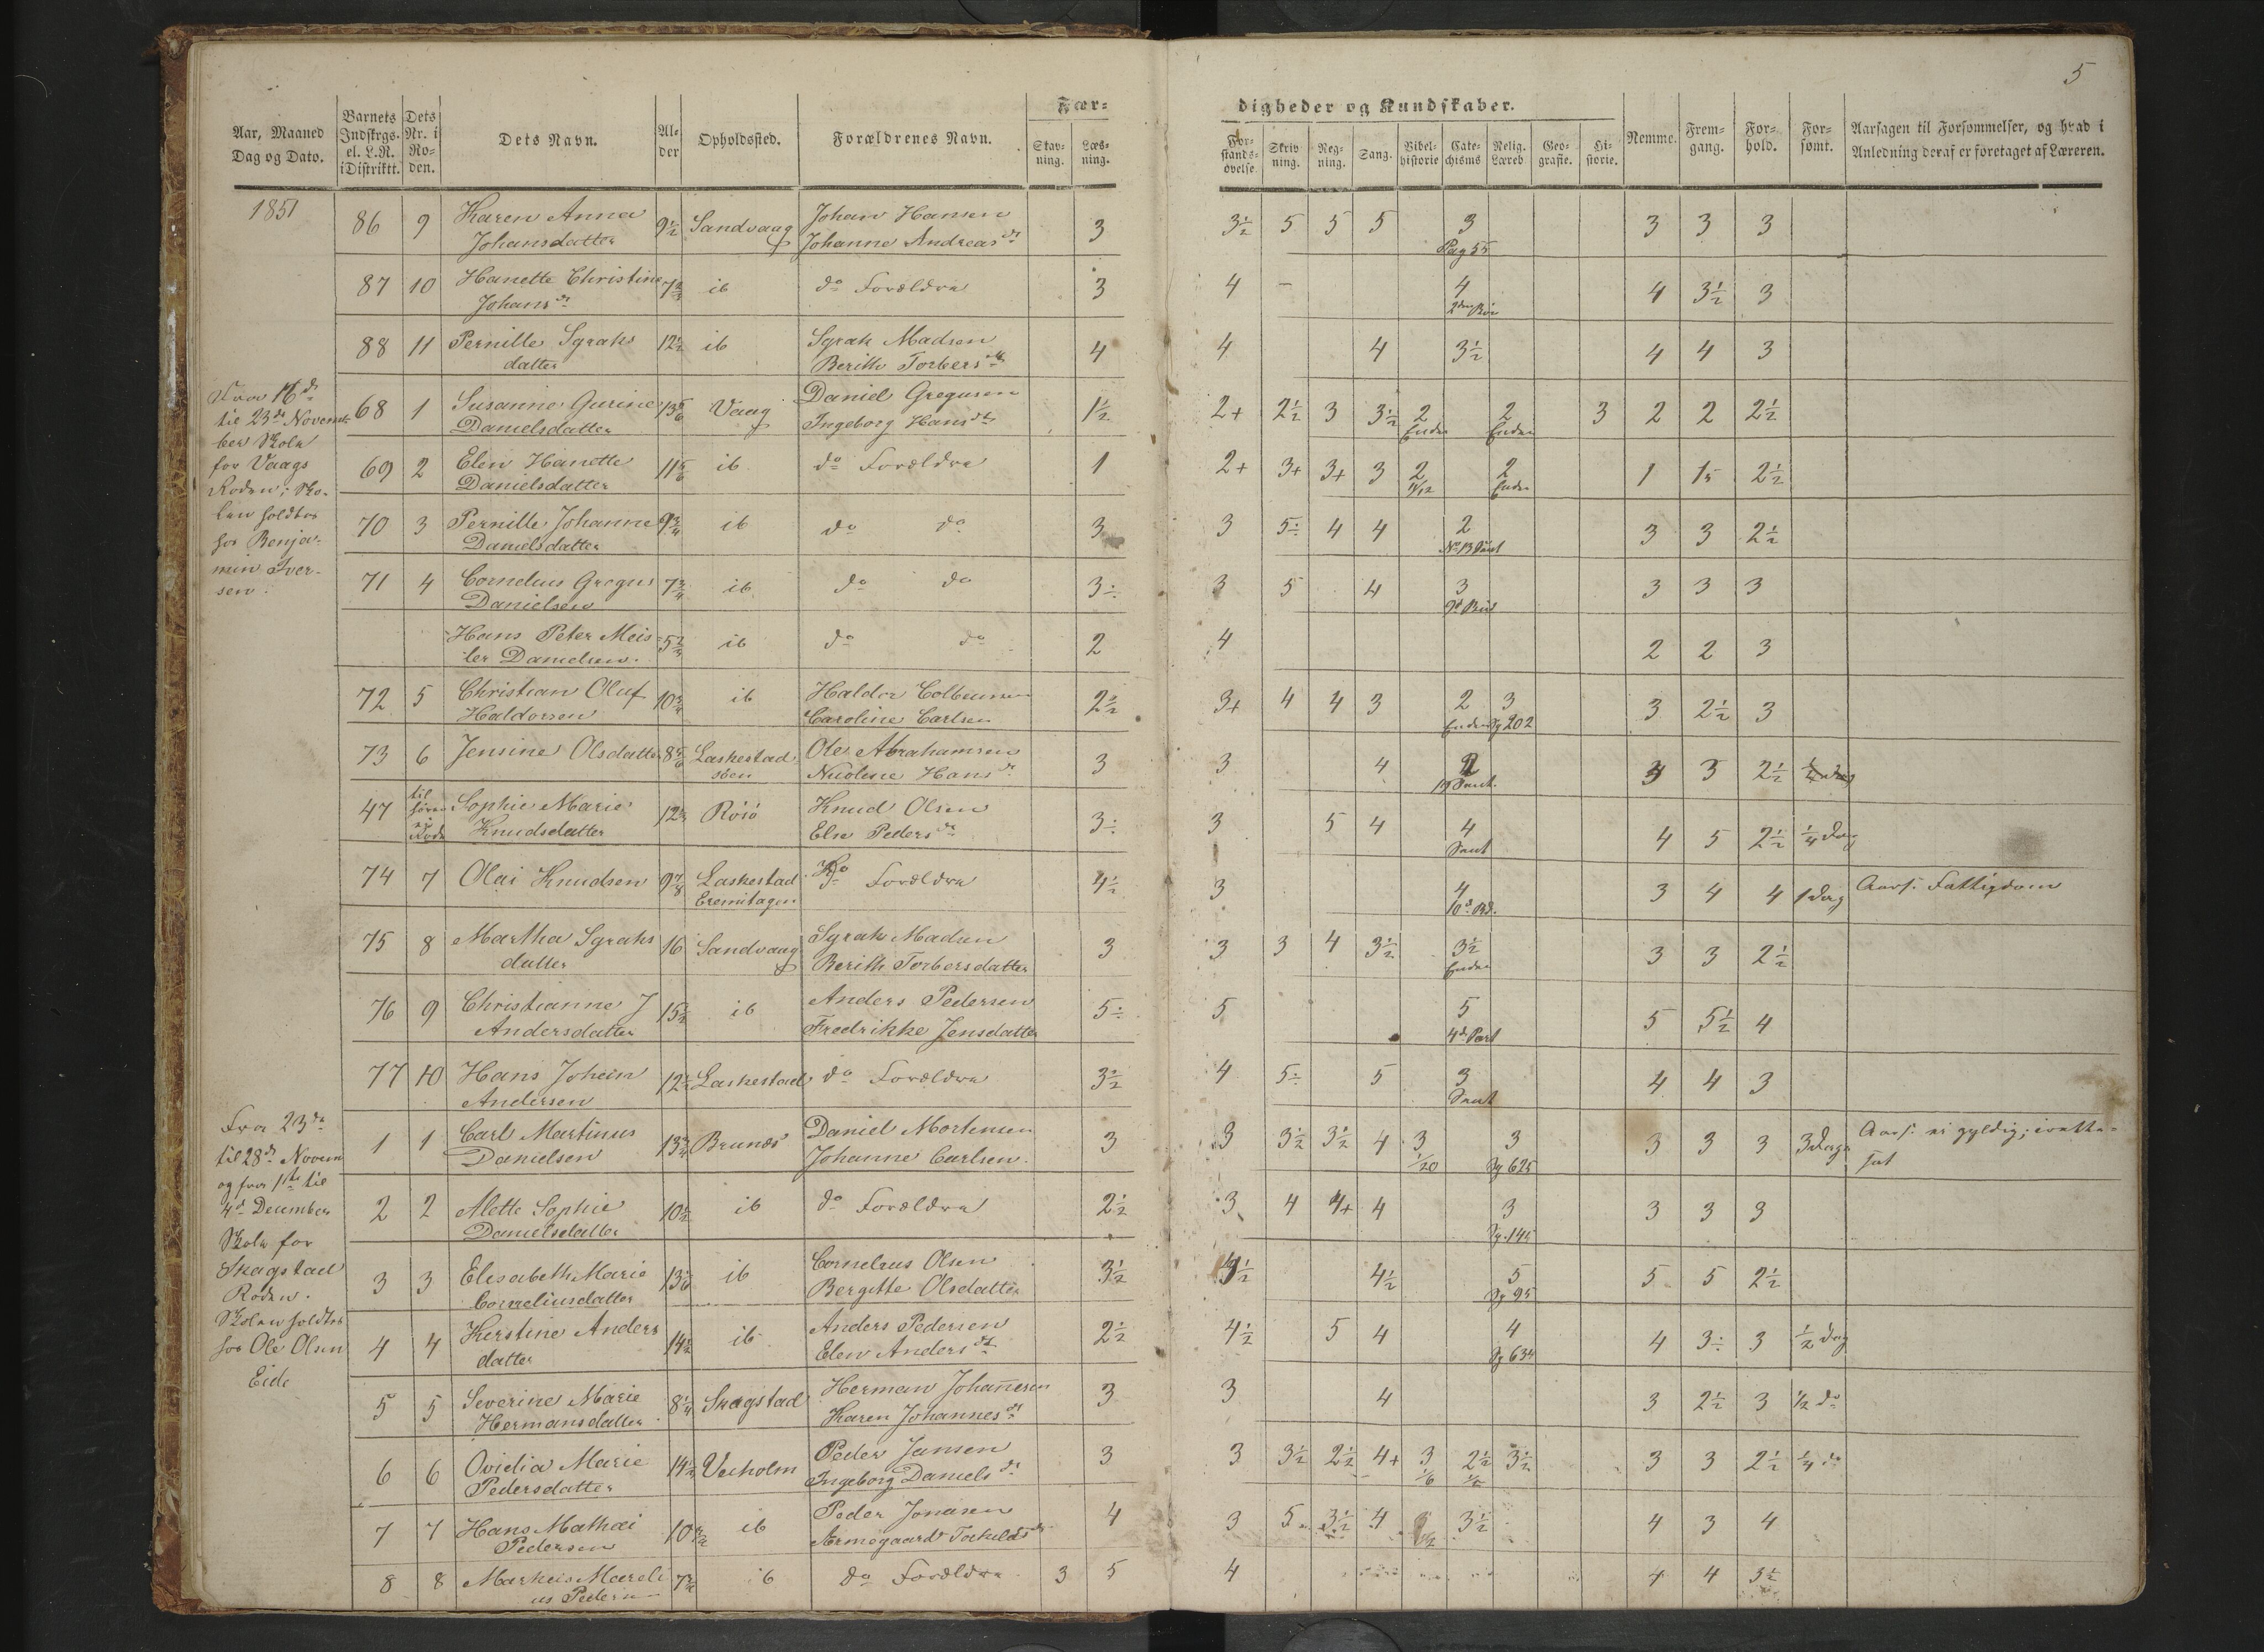 5
Fær-
digheder og Kundskaber.
Aar, Maaned Dag og Dato.
Barnets Indskrgs. el. L.N. i Distriktt.
Dets Nr. i Ro- den.
Dets Navn.
Al- der
Opholdssted.
Forældrenes Navn.
Stav- ning.
Læs- ning.
For- stands- øvelse.
Skriv ning.
Reg- ning.
Sang.
Bibel- historie
Cate- chisms
Relig. Læreb
Geo- grafie.
Hi- storie.
Nemme.
Frem- gang.
For- hold.
For- sømt.
Aarsagen til Forsømmelser, og hvad i Anledning deraf er foretaget af Læreren.
1851
86 9 Karen Anna 9½ Sandvaag Johan Hansen 3 3½ 5 5 5 3 3 3 3
Johansdatter Johanne Andreas dr Pag 55
87 10 Hanette Christine ib do Forældre 3 4 4 4 3½ 3
Johans dr
88 11 Pernille Sgrahs 12½ ib Sgrah Madsen 4 4 4 3½ 4 4 3
datter Berith Torbers dr
Fra 16de
til 23de Novem-
ber Skole
for Vaags
Roden; Sko-
len holdtes
hos Benja-
min Iver-
sen.
68 1 Susanne Gurine Vaag Daniel Gregusen 1½ 2+ 2½ 3 3½ 2 2 3 2 2 2½
Danielsdatter Ingeborg Hans dr Enden Enden
69 2 Elen Hanette 11 5/6 ib do Forældre 1 2+ 3+ 3+ 3 2 2 1 2½
Danielsdatter 11/12 Enden
70 3 Pernille Johanne ib do do 3 3 5÷ 4 4 2 3 3 2½
Danielsdatter
71 4 Cornelius Gregus 7¾ ib do do 3÷ 3 5 4 3 3 3 3
Danielsen
Hans Peter Meis- ib do do 2 4 2 2 3
ler Danielsen.
72 5 Christian Oluf ib Haldor 2½ 3+ 4 4 3 2 3 3 2½ 3
Haldorsen Caroline Carlsen Enden Pg 202
73 6 Jensine Olsdatter 8 5/6 Laskestad Ole Abrahamsen 3 3 4 2 3 2½
søen Nicoline Hans dr
47 til Sophie Marie Rösö Knud Olsen 3÷ 3 5 4 4 4 5 2½ ¼ dag
Knudsdatter Else Peders dr
74 7 Olai Knudsen 9 7/8 Laskestad do Forældre 4½ 3 4 3 4 4 1 dag Aars: Fattigdom
Eremitagen
75 8 Martha Sgrahs 16 Sandvaag Sgrah Madsen 3 3 3 4 3½ 3½ 3 3 2½
datter Berith Torbersdatter Enden
76 9 Christianne J 15½ ib Anders Pedersen 5÷ 5 5 5 5½ 4
Andersdatter Fredrikke Jensdatter 4de Part
77 10 Hans Johan 12½ Laskestad do Forældre 3½ 4 5÷ 5 3 4 4 3
Andersen
Fra 23de
til 28de Novem
og fra 1ste til
4de December
Skole for
Skagstad
Roden.
Skolen holdtes
hos Ole Olsen
Eide
1 1 Carl Martinus Brunæs Daniel Mortensen 3 3 3½ 3½ 4 3 3 3 3 3 3 dage Aars: ei gyldig;
Danielsen Johanne Carlsen. 1/20 Pg 625
2 2 Mette Sophie 10½ ib do Forældre 2½ 3 4 4+ 4 3 3 3 3
Danielsdatter Pg. 145
3 3 Elisabeth Marie ib Cornelius Olsen 3½ 4½ 5 5 5 2½
Corneliusdatter Bergitte Olsdatter Pg 95
4 4 Kerstine Anders 14½ ib Anders Pedersen 2½ 4½ 5 4 4 4 3÷ 3 ½ dag
datter Elen Anders dr Pg 634
5 5 Severine Marie 8¼ Skagstad Herman Johannesen 3 3 4 3 2½ 3 ½ do
Hermansdatter Karen Johannes dr
6 6 Ovidia Marie 14½ Veeholm Peder Jansen 3 3 3½ 2½ 4+ 3 2½ 3½ 3 3 2½
Pedersdatter Ingeborg Daniels dr 1/6
7 7 Hans Mathæi ib Peder Jonasen 4 3 5 3½ 4 3½ 4 3 4
Pedersen
8 8 Markus Mareli ib do Forældre 3 5 4 4 4 3½
us Pedersen